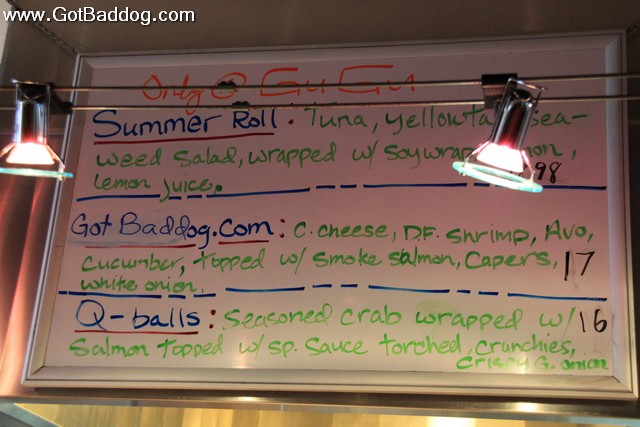 www.GotBaddog.com
Only @ GuGu
Summer Roll: Tuna, yellowta sea-
weed salad, wrapped w/ soywrap, on,
lemon juice. 98
Got Baddog.com: C. cheese, D.F. shrimp, Avo,
cucumber, topped w/ smoke salmon, Capers, 17
white onion.
Q-balls: Seasoned crab wrapped w/ 16
Salmon topped w/ sp. Sauce torched, crunchies,
crispy G. onion